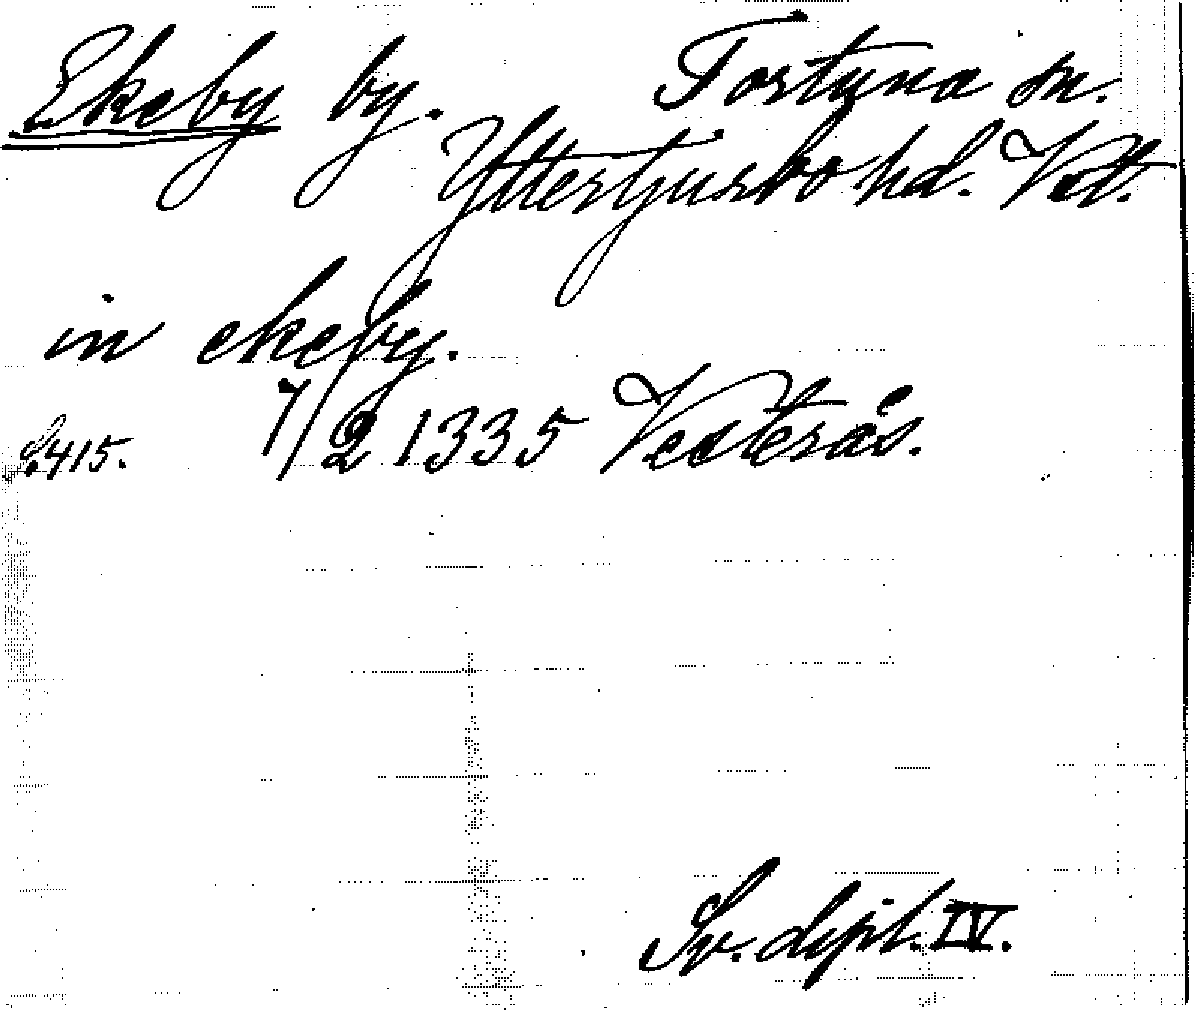 Ekeby by. Tortuna sn.
Yttertjurbo hd. Vstl.
in ekeby.
S. 415. 7/2 1335 Vesterås.
Sv. dipl. IV.